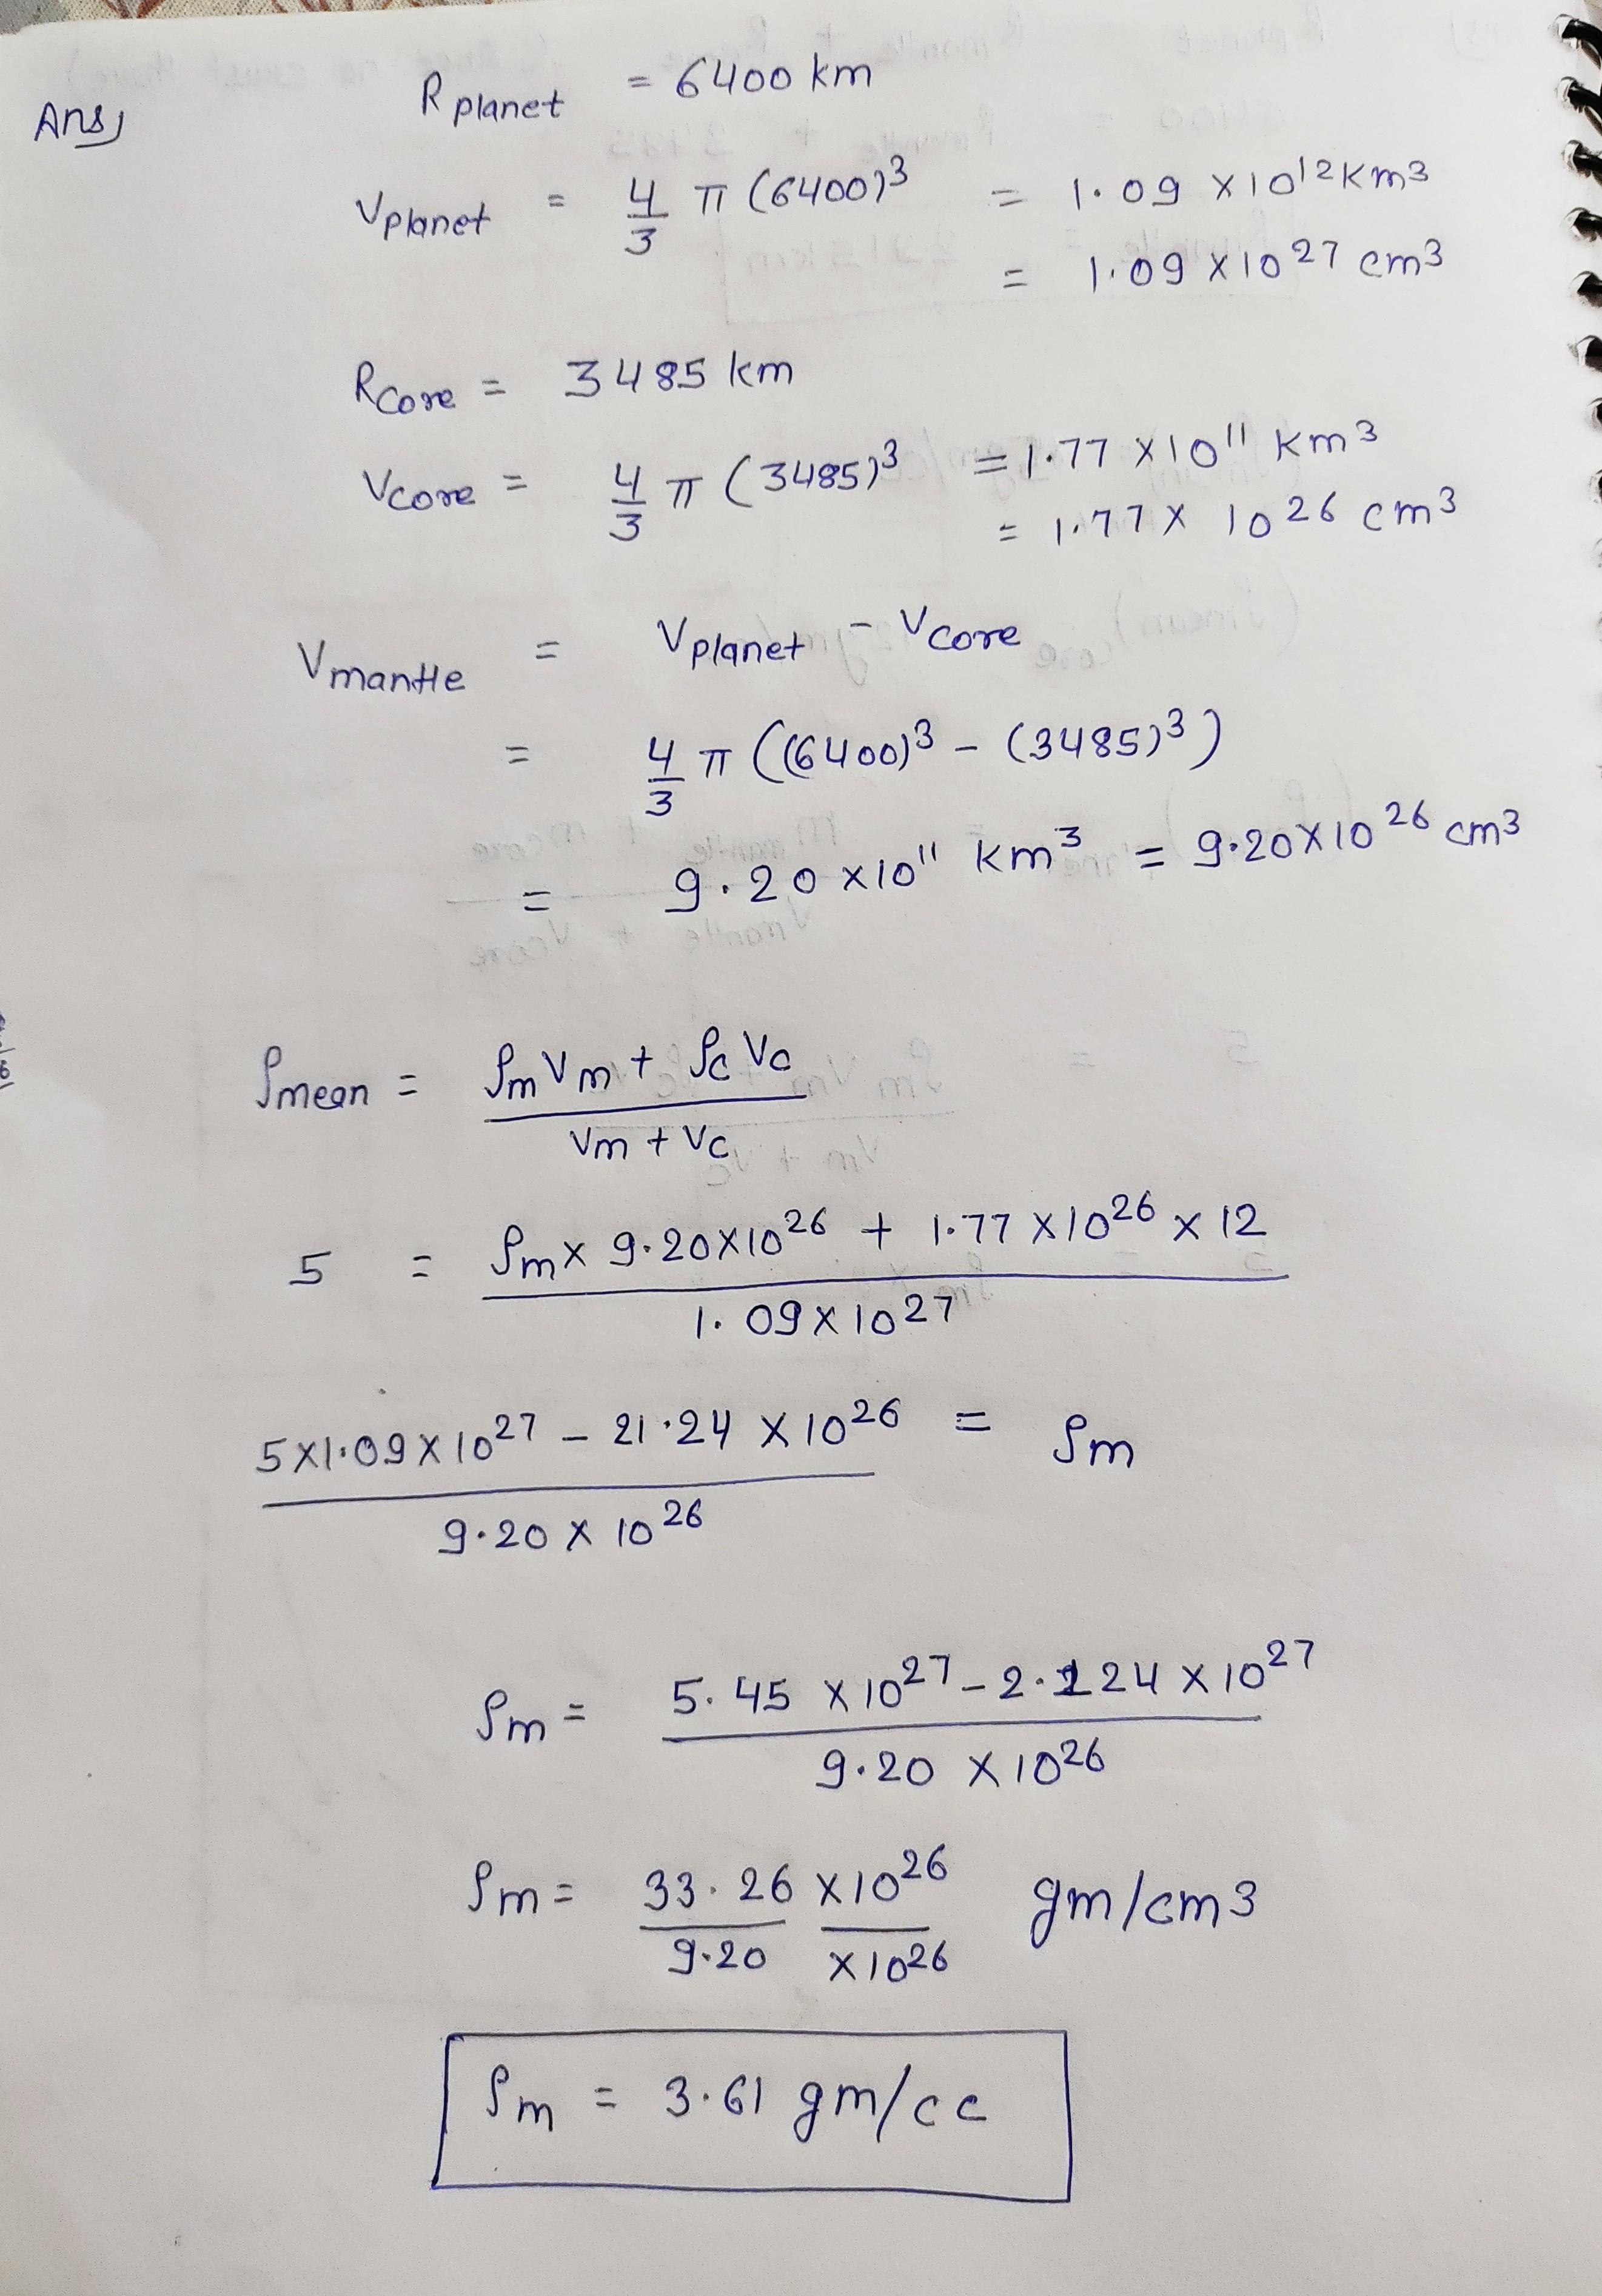 Ans) R planet = 6400 km
V planet = 4/3 π (6400)³ = 1.09 × 10¹² km³
= 1.09 × 10²⁷ cm³
R core = 3485 km
V core = 4/3 π (3485)³ = 1.77 × 10¹¹ km³
= 1.77 × 10²⁶ cm³
V mantle = V planet - V core
= 4/3 π ((6400)³ - (3485)³)
= 9.20 × 10¹¹ km³ = 9.20 × 10²⁶ cm³
ρ mean = ρm Vm + ρc Vc / Vm + Vc
5 = ρm × 9.20 × 10²⁶ + 1.77 × 10²⁶ × 12 / 1.09 × 10²⁷
5 × 1.09 × 10²⁷ - 21.24 × 10²⁶ / 9.20 × 10²⁶ = ρm
ρm = 5.45 × 10²⁷ - 2.124 × 10²⁷ / 9.20 × 10²⁶
ρm = 33.26 × 10²⁶ / 9.20 × 10²⁶ gm/cm3
ρm = 3.61 gm/cc